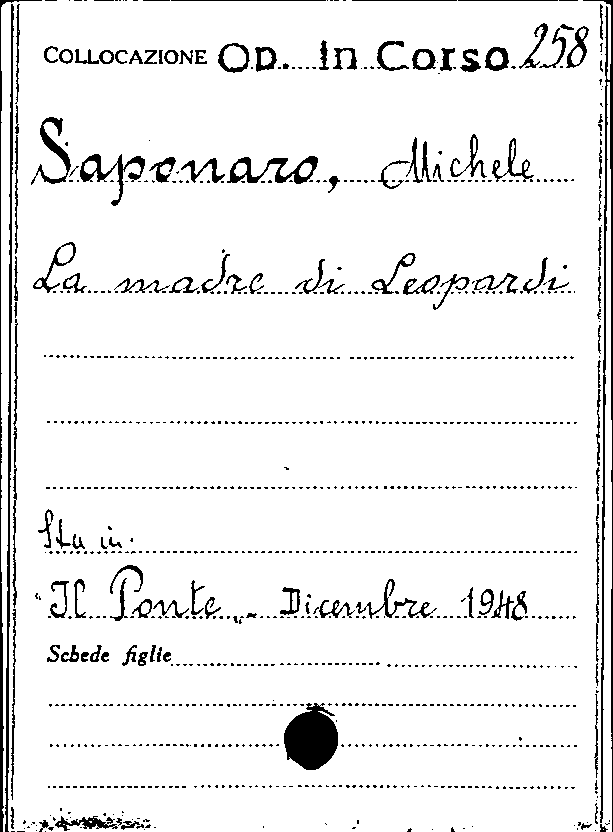 COLLOCAZIONE OD. In Corso 258
Saponaro, Michele
La madre di Leopardi
Sta in:
"Il Ponte„ - Dicembre 1948
Schede figlie